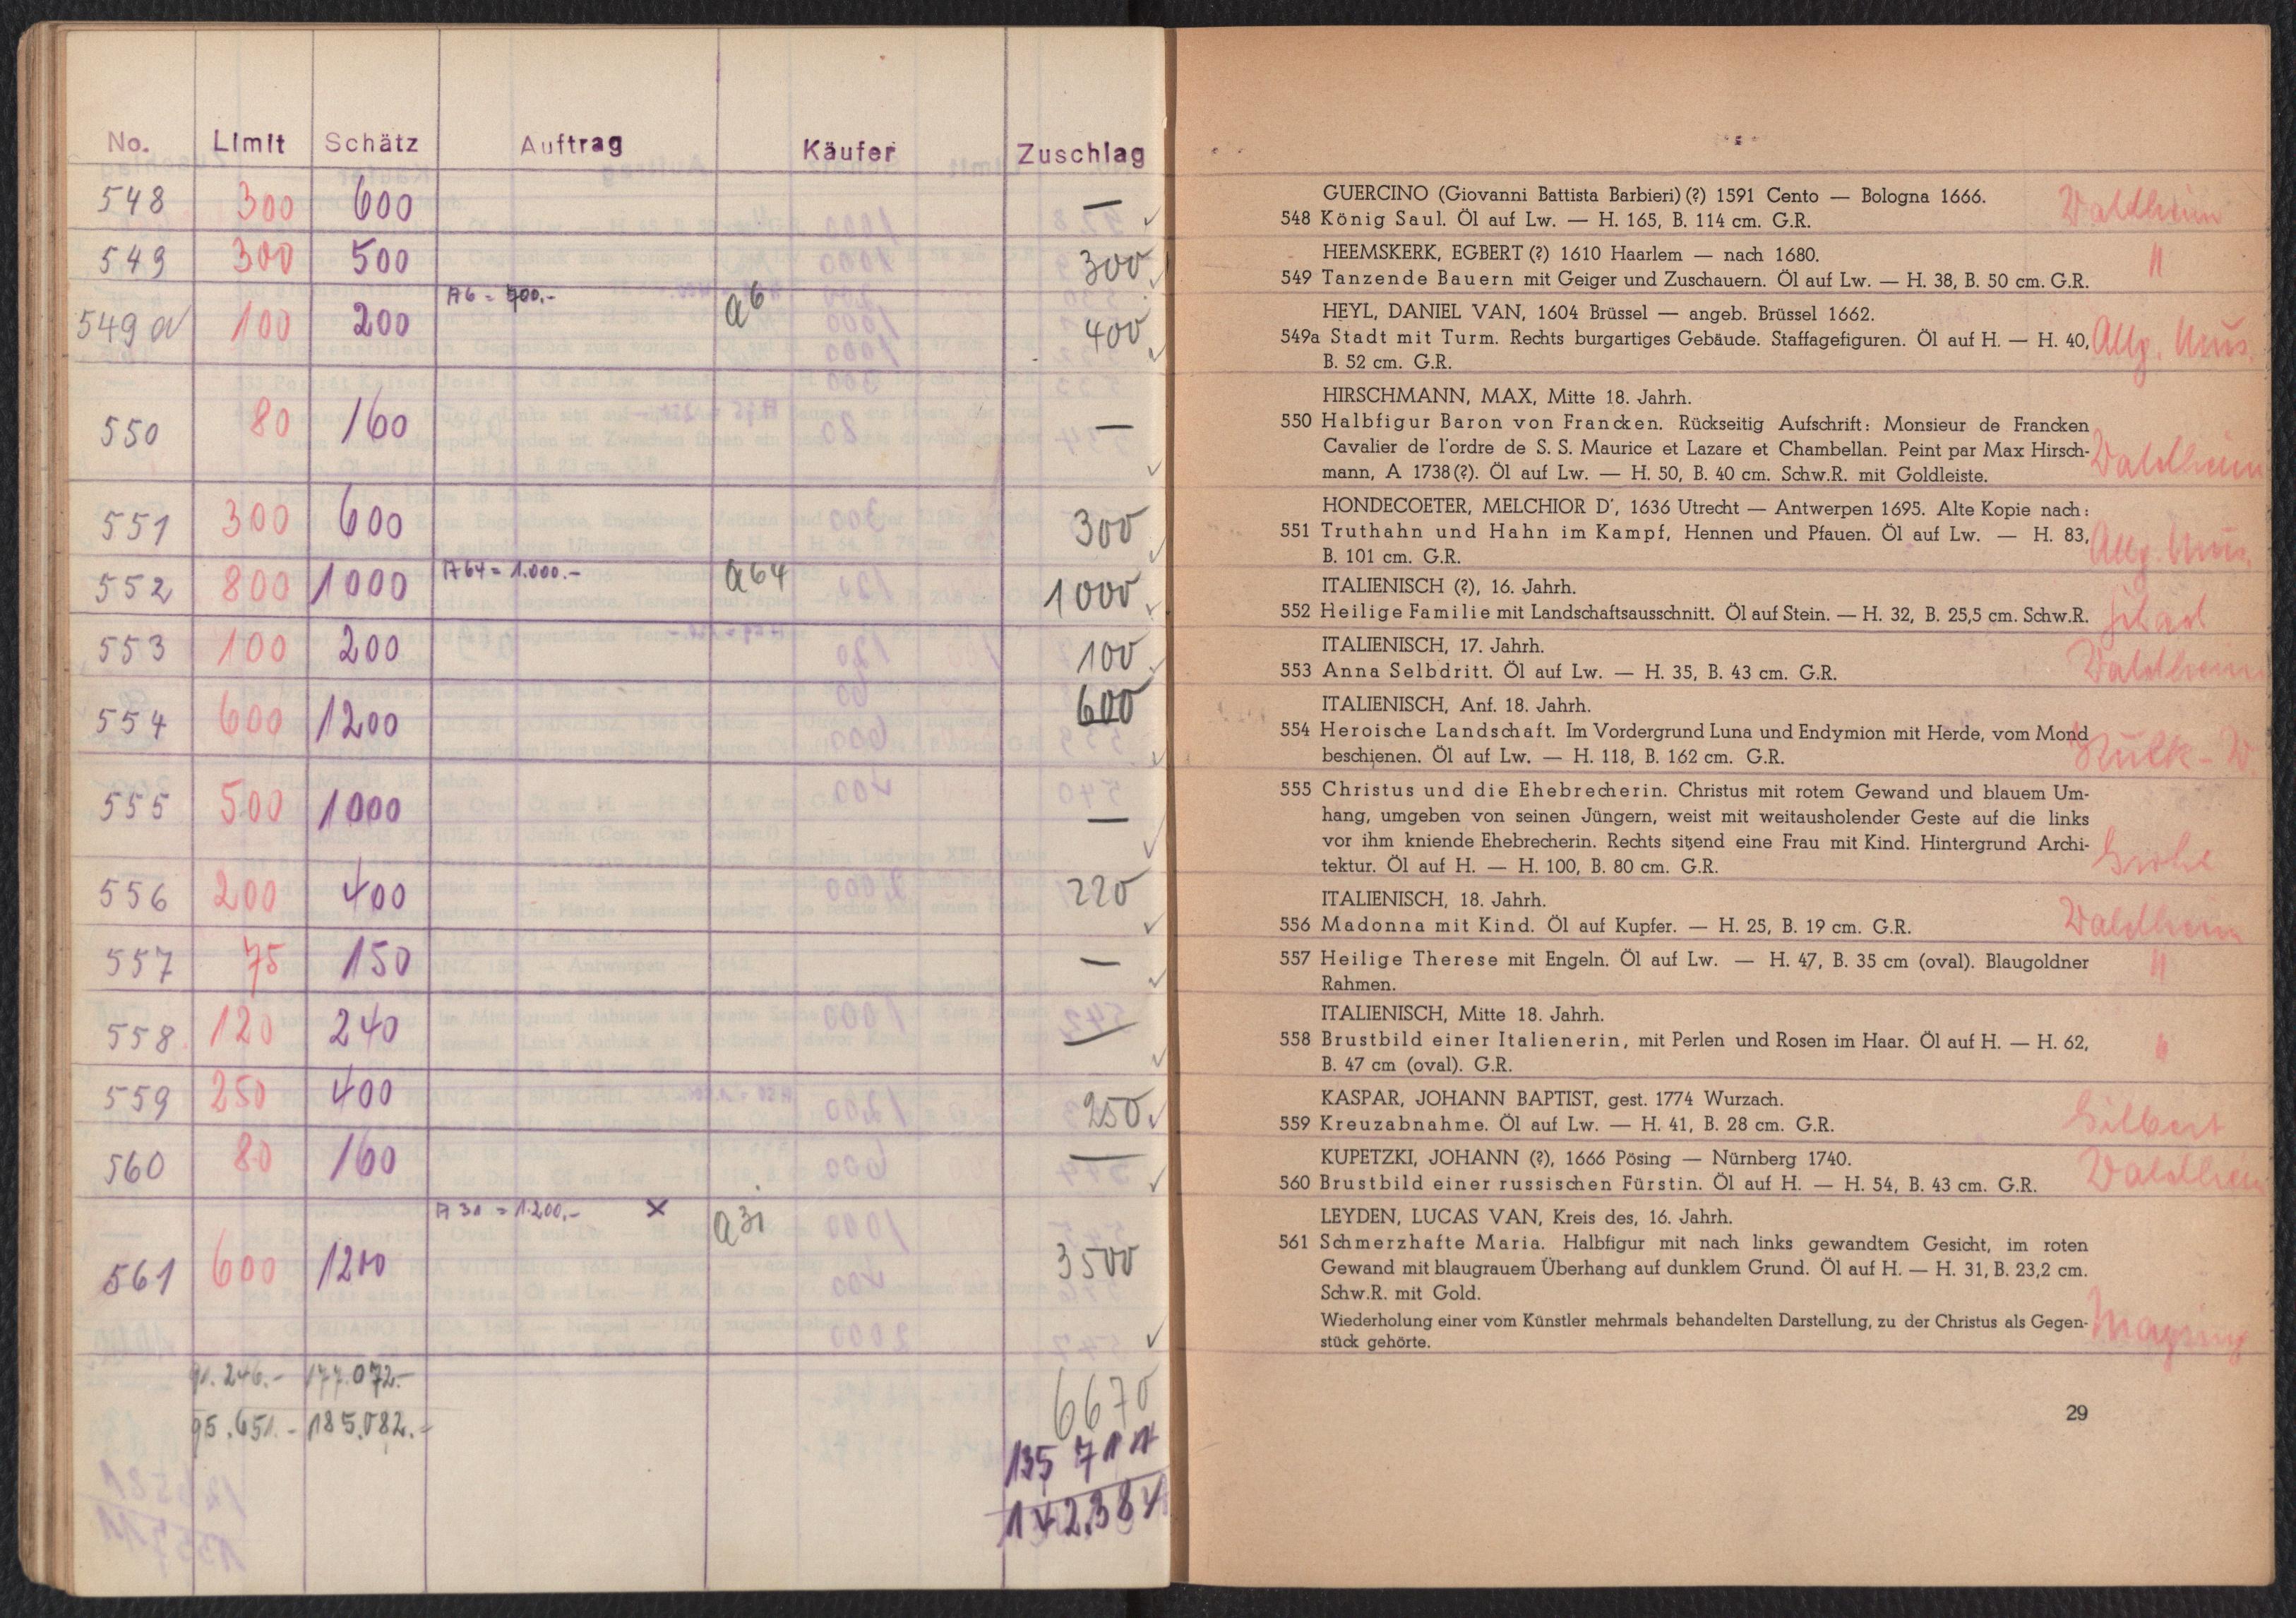 No. Limit Schätz Auftrag Käufer Zuschlag
548 300 600 —
549 300 500 300
549 a 100 200 A6 = 700.- a6 400
550 80 160 —
551 300 600 300
552 800 1000 A64 = 1.000.- a64 1000
553 100 200 100
554 600 1200 600
555 500 1000 —
556 200 400 220
557 75 150 —
558 120 240 —
559 250 400 250
560 80 160 —
561 600 1200 A 31 = 1.200,- x a31 3500
91.246.- 177.072.- 6670
95.651.- 185.082.- 135 711
142.381
GUERCINO (Giovanni Battista Barbieri) (?) 1591 Cento — Bologna 1666.
548 König Saul. Öl auf Lw. — H. 165, B. 114 cm. G.R. Waldheim
HEEMSKERK, EGBERT (?) 1610 Haarlem — nach 1680.
549 Tanzende Bauern mit Geiger und Zuschauern. Öl auf Lw. — H. 38, B. 50 cm. G.R. "
HEYL, DANIEL VAN, 1604 Brüssel — angeb. Brüssel 1662.
549a Stadt mit Turm. Rechts burgartiges Gebäude. Staffagefiguren. Öl auf H. — H. 40, Allg. Mus.
B. 52 cm. G.R.
HIRSCHMANN, MAX, Mitte 18. Jahrh.
550 Halbfigur Baron von Francken. Rückseitig Aufschrift: Monsieur de Francken
Cavalier de l'ordre de S. S. Maurice et Lazare et Chambellan. Peint par Max Hirsch- Waldheim
mann, A 1738 (?). Öl auf Lw. — H. 50, B. 40 cm. Schw.R. mit Goldleiste.
HONDECOETER, MELCHIOR D', 1636 Utrecht — Antwerpen 1695. Alte Kopie nach:
551 Truthahn und Hahn im Kampf, Hennen und Pfauen. Öl auf Lw. — H. 83, Allg. Mus.
B. 101 cm. G.R.
ITALIENISCH (?), 16. Jahrh.
552 Heilige Familie mit Landschaftsausschnitt. Öl auf Stein. — H. 32, B. 25,5 cm. Schw.R.
ITALIENISCH, 17. Jahrh.
553 Anna Selbdritt. Öl auf Lw. — H. 35, B. 43 cm. G.R. Waldheim
ITALIENISCH, Anf. 18. Jahrh.
554 Heroische Landschaft. Im Vordergrund Luna und Endymion mit Herde, vom Mond
beschienen. Öl auf Lw. — H. 118, B. 162 cm. G.R.
555 Christus und die Ehebrecherin. Christus mit rotem Gewand und blauem Um-
hang, umgeben von seinen Jüngern, weist mit weitausholender Geste auf die links
vor ihm kniende Ehebrecherin. Rechts sitzend eine Frau mit Kind. Hintergrund Archi-
tektur. Öl auf H. — H. 100, B. 80 cm. G.R.
ITALIENISCH, 18. Jahrh.
556 Madonna mit Kind. Öl auf Kupfer. — H. 25, B. 19 cm. G.R. Waldheim
557 Heilige Therese mit Engeln. Öl auf Lw. — H. 47, B. 35 cm (oval). Blaugoldner "
Rahmen.
ITALIENISCH, Mitte 18. Jahrh.
558 Brustbild einer Italienerin, mit Perlen und Rosen im Haar. Öl auf H. — H. 62, "
B. 47 cm (oval). G.R.
KASPAR, JOHANN BAPTIST, gest. 1774 Wurzach.
559 Kreuzabnahme. Öl auf Lw. — H. 41, B. 28 cm. G.R. Gilbert
KUPETZKI, JOHANN (?), 1666 Pösing — Nürnberg 1740.
560 Brustbild einer russischen Fürstin. Öl auf H. — H. 54, B. 43 cm. G.R. Waldheim
LEYDEN, LUCAS VAN, Kreis des, 16. Jahrh.
561 Schmerzhafte Maria. Halbfigur mit nach links gewandtem Gesicht, im roten
Gewand mit blaugrauem Überhang auf dunklem Grund. Öl auf H. — H. 31, B. 23,2 cm.
Schw.R. mit Gold.
Wiederholung einer vom Künstler mehrmals behandelten Darstellung, zu der Christus als Gegen-
stück gehörte.
29